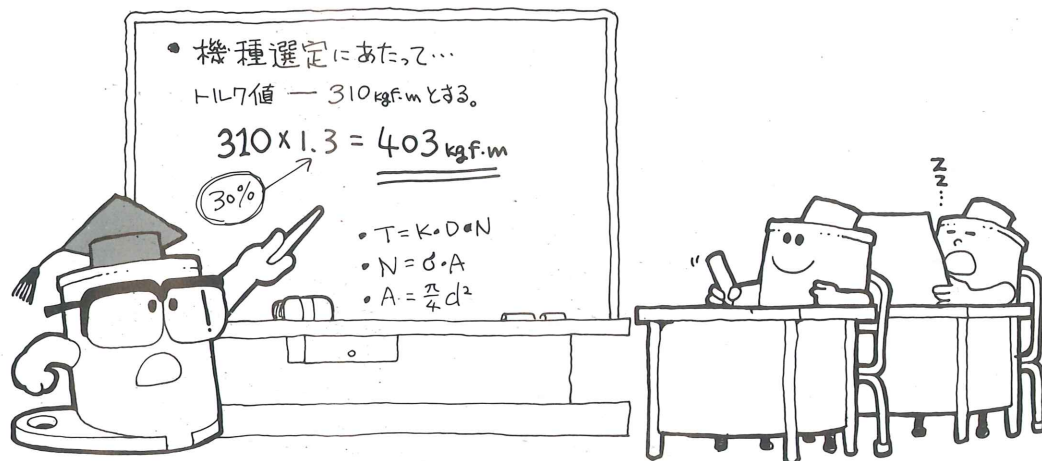 • 機種選定にあたって…
トルク値 — 310kgf·mとする。
310×1.3 = 403kgf·m
30%
• T=K•D•N
• N=σ•A
• A=π/4 d²
z
z